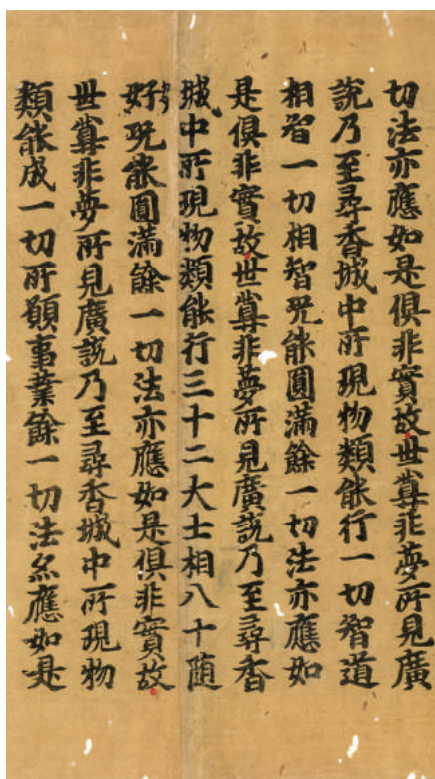 切法亦應如是俱非實故世尊非夢所見廣
說乃至尋香城中所現物類能行一切智道
相智一切相智咒能圓滿餘一切法亦應如
是俱非實故世尊非夢所見廣說乃至尋香
城中所現物類能行三十二大士相八十随
好咒能圓滿餘一切法亦應如是俱非實故
世尊非夢所見廣說乃至尋香城中所現物
類能成一切所願事業餘一切法亦應如是